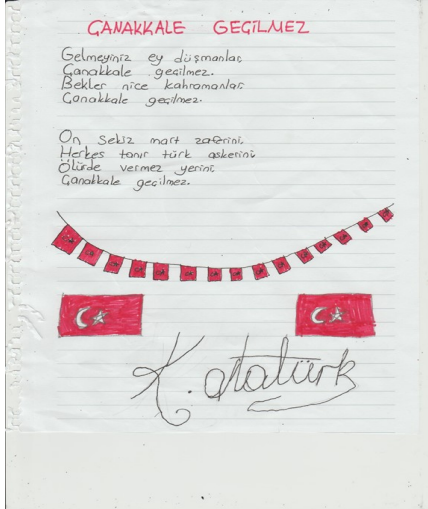 ÇANAKKALE GEÇİLMEZ
Gelmeyiniz ey düşmanlar,
Çanakkale geçilmez.
Bekler nice kahramanlar
Çanakkale geçilmez.
On Sekiz mart zaferini,
Herkes tanır türk askerini
Ölürde vermez yerini,
Çanakkale geçilmez.
K. Atatürk